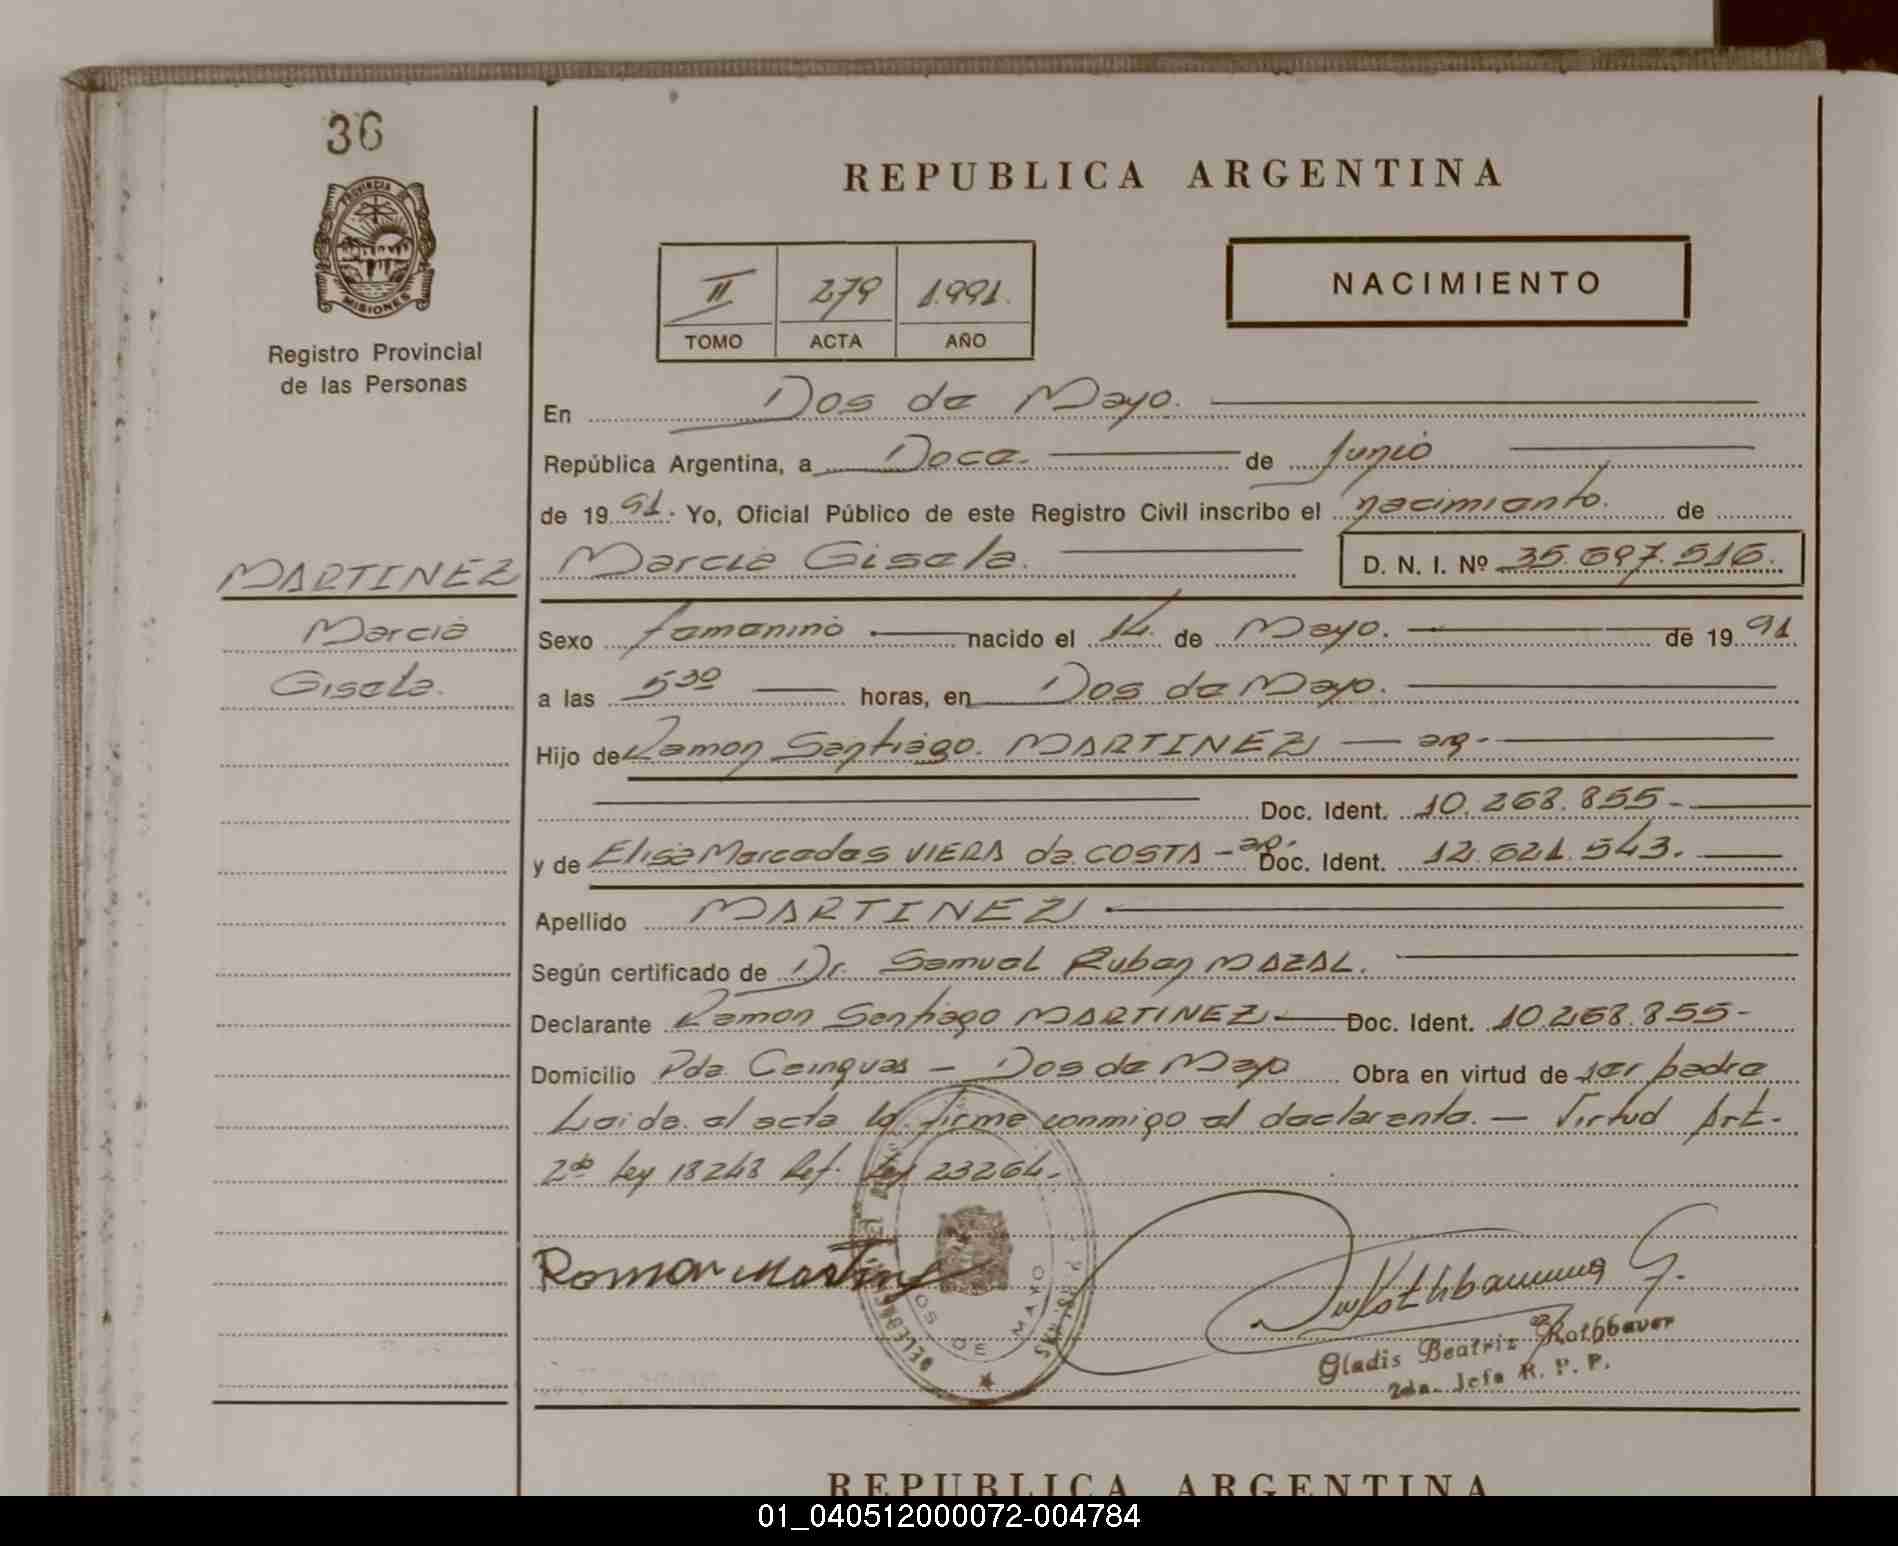 36
PROVINCIA DE
MISIONES
Registro Provincial
de las Personas
MARTINEZ
Marcia
Gisela.
REPUBLICA ARGENTINA
II 279 1.991.
TOMO ACTA AÑO
NACIMIENTO
En Dos de Mayo.
República Argentina, a Doce. de Junio
de 1991. Yo, Oficial Público de este Registro Civil inscribo el nacimiento. de
Marcia Gisela. D. N. I. Nº 35.697.516.
Sexo femenino nacido el 14. de Mayo. de 1991
a las 5³⁰ horas, en Dos de Mayo.
Hijo de Ramon Santiago. MARTINEZ — arg.
Doc. Ident. 10.268.855-
y de Elisa Mercedes VIERA de COSTA - arg. Doc. Ident. 12.621.543.
Apellido MARTINEZ
Según certificado de Dr. Samuel Ruben MAZAL.
Declarante Ramon Santiago MARTINEZ Doc. Ident. 10.268.855-
Domicilio Pda. Cainguas - Dos de Mayo Obra en virtud de ser padre
Leida el acta la firma conmigo el declarante. — Virtud Art.
2do Ley 18248 Ref. Ley 23264.
Ramon Martinez
DOS DE MAYO
Rothbauer G.
Gladis Beatriz Rothbauer
2da. Jefa R. P. P.
REPUBLICA ARGENTINA
01_040512000072-004784